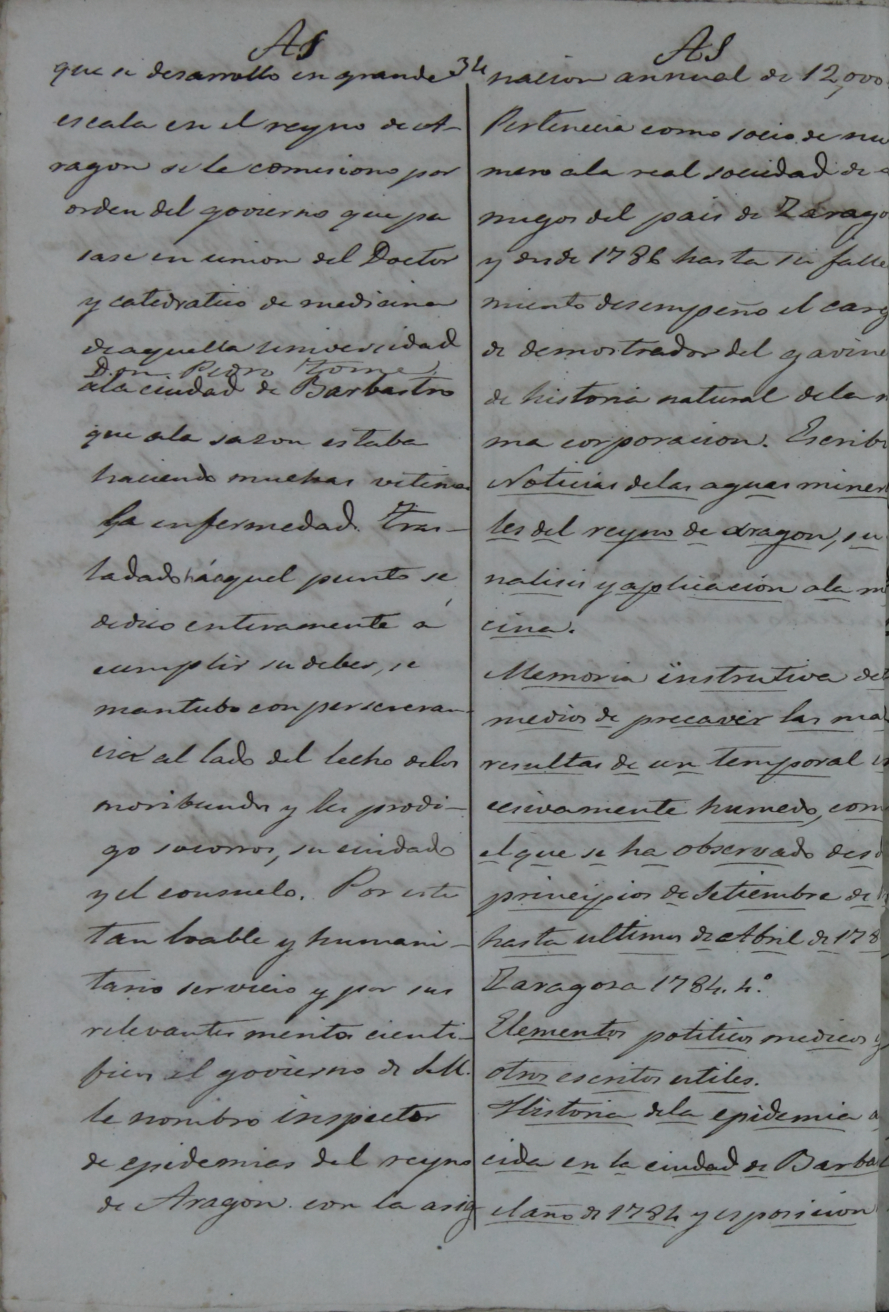 AS
34
que se desarrollo en grande
escala en el reyno de A-
ragon se le comisiono por
orden del govierno que pa
sase en union del Doctor
y catedratico de medicina
de aquella universidad
Don Pedro Tome
a la ciudad de Barbastro
que a la sazon estaba
haciendo muchas vitimas
la enfermedad. Tras-
ladado aquel punto se
dedico enteramente á
cumplir su deber, se
mantubo con perseveran-
cia al lado del lecho de los
moribundos y les prodi-
go socorros, su cuidado
y el consuelo. Por este
tan loable y humani-
tario servicio y por sus
relevantes meritos cienti-
ficos el govierno de S.M.
le nombro inspector
de epidemias del reyno
de Aragon con la asig
AS
nacion annual de 12,000
Pertenecia como socio de nu
mero a la real sociedad de a
migos del pais de Zarago
y desde 1786 hasta su falle
miento desempeño el carg
de demostrador del gavine
de historia natural de la m
ma corporacion. Escribi
Noticias de las aguas miner
les del reyno de aragon, su
nalisis y aplicacion a la m
cina.
Memoria instrutiva de
medios de precaver las ma
resultas de un temporal
cesivamente humedo, com
el que se ha observado desd
principios de Setiembre de
hasta ultimos de Abril de 178
Zaragosa 1784. 4.º
Elementos politicos medicos y
otros escritos utiles.
Historia de la epidemia a
cida en la ciudad de Barba
el año de 1784 y esposicion